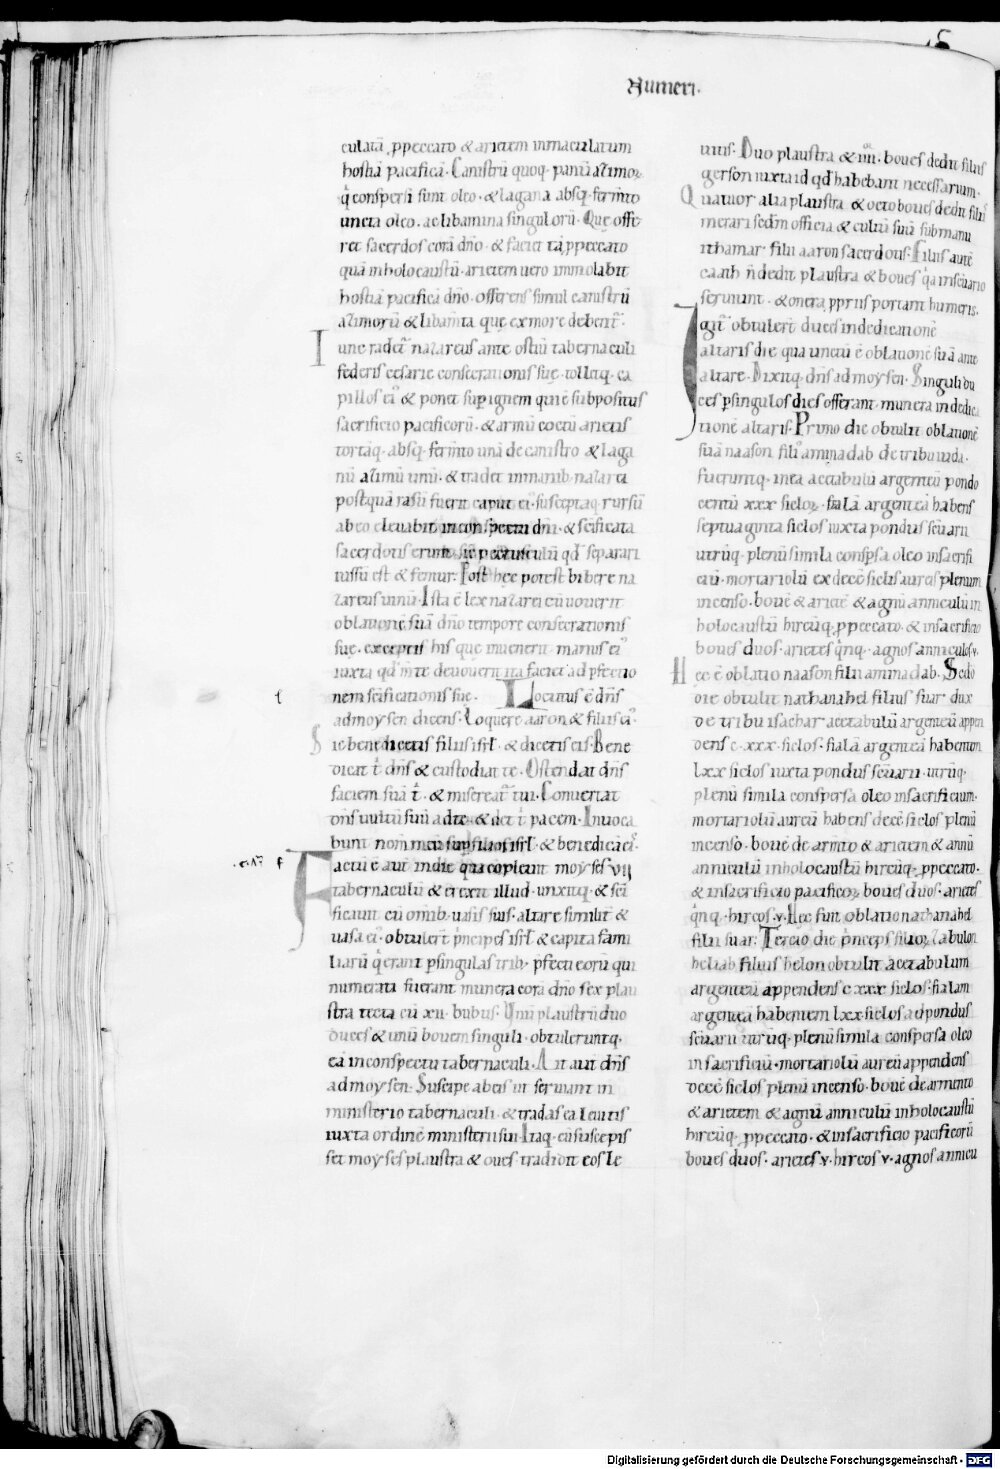 Numeri.
culatā ꝓpeccato & arietem inmaculatum
hostiā pacificā. Canistrū quoq; paniū azimoꝝ
q̇ conspersi sunt oleo. & lagana absq; fermto
uncta oleo. ac libamina singulorū. Quę offe
ret sacerdos corā dño. & faciet tā ꝓpeccato
quā inholocaustū. arietem uero immolabit
hostiā pacificā dño. offerens simul canistrū
azimorū & libam̄ta quę exmore debent͛.
Tunc radet͛ nazareus ante ostiū tabernaculi
federis cesarie consecrationis suę. tolletq; ca
pillos ei᾽ & ponet sup ignem qui ē subpositus
sacrificio pacificorū. & armū coctū arietis
tortāq; absq; fermto unā de canistro & laga
nū azimū unū. & tradet inmanib; nazarei
postquā rasū fuerit caput ei᾽. susceptaq; rursū
ab eo eleuabit inconspectu dñi. & scificata
sacerdotis erunt. sic pectusculū qd̄ separari
iussū est & femur. Post hęc potest bibere na
zareus uinū. Ista ē lex nazarei cū uouerit
oblationē suā dño tempore consecrationis
suę. exceptis his quę inuenerit manus ei᾽
iuxta qd̄ m̄te deuouerit ita faciet ad pfectio
nem scificationis suę. Locutus ē dñs
admoysen dicens. Loquere aaron & filiis ei᾽.
Sic benedicetis filiis isrł. & dicetis eis. Bene
dicat t̄ dñs & custodiat te. Ostendat dñs
faciem suā t̄. & misereat͛ tui. Conuertat
dñs uultū suū ad te. & det t̄ pacem. Inuoca
bunt nomen meū sup filios isrł. & benedicā ei᾽.
Factū ē aut̄ indie qua cōpleuit moyses VII
tabernaculū & erexit illud. unxitq; & scī
ficauit cū omib; uasis suis. altare similit̄ &
uasa ei᾽. obtulert̄ pͥncipes isrł & capita fami
liarū q̇ erant psingulas trib;. pfecti eorū qui
numerati fuerant munera corā dño sex plau
stra tecta cū XII. bubus. Vnū plaustrū duo
duces & unū bouem singuli. obtuleruntq;
ea inconspectu tabernaculi. Ait aut̄ dñs
admoysen. Suscipe abeis ut seruiant in
ministerio tabernaculi. & tradas ea leuitis
iuxta ordinē ministerii sui. Itaq; cū suscepis
set moyses plaustra & oues tradidit eos le
uitis. Duo plaustra & IIII. boues dedit filiis
gerson iuxta id qd̄ habebant necessarium.
Quatuor alia plaustra & octo boues dedit filiis
merari sedm̄ officia & cultū suū submanu
ithamar filii aaron sacerdotis. Filiis autē
caath ñ dedit plaustra & boues q̇a inscuario
seruiunt. & onera ꝓpriis portant humeris.
Igit͛ obtulert̄ duces indedicationē
altaris die qua unctū ē oblationē suā ante
altare. Dixitq; dñs admoysen. Singuli du
ces psingulos dies offerant munera indedica
tionē altaris. Primo die obtulit oblationē
suā naason fili᾽ aminadab de tribu iuda.
fueruntq; inea acetabulū argenteū pondo
centū XXX sicloꝝ. fialā argenteā habens
septuaginta siclos iuxta pondus scuarii
utrūq; plenū simila conspsa oleo insacrifi
ciū. mortariolū ex decē siclis aureis plenum
incenso. bouē & arietē & agnū anniculū in
holocaustū hircūq; ꝓpeccato. & insacrificio
boues duos. arietes q̇nq;. agnos anniculos V.
Hęc ē oblatio naason filii aminadab. Sedo
die obtulit nathanahel filius suar dux
de tribu isachar acetabulū argenteū appen
dens C.XXX. siclos. fialā argenteā habentem
LXX siclos iuxta pondus scuarii. utrūq;
plenū simila conspersa oleo insacrificium.
mortariolū aureū habens decē siclos plenū
incenso. bouē de arm̄to & arietem & agnū
anniculū inholocaustū hircūq; ꝓpeccato.
& insacrificio pacificoꝝ boues duos. arietes
q̇nq;. hircos. V. Hęc sunt oblatio nathanahel
filii suar. Tercio die pͥnceps filioꝝ zabulon
heliab filius helon obtulit acetabulum
argenteū appendens C XXX siclos. fialam
argenteā habentem LXX siclos ad pondus
scuarii utrūq; plenū simila conspersa oleo
insacrificiū. mortariolū aureū appendens
decē siclos plenū incenso. bouē de armento
& arietem & agnū anniculū inholocaustū
hircūq; ꝓpeccato. & insacrificio pacificorū
boues duos. arietes V. hircos V. agnos annicu
Digitalisierung gefördert durch die Deutsche Forschungsgemeinschaft - DFG